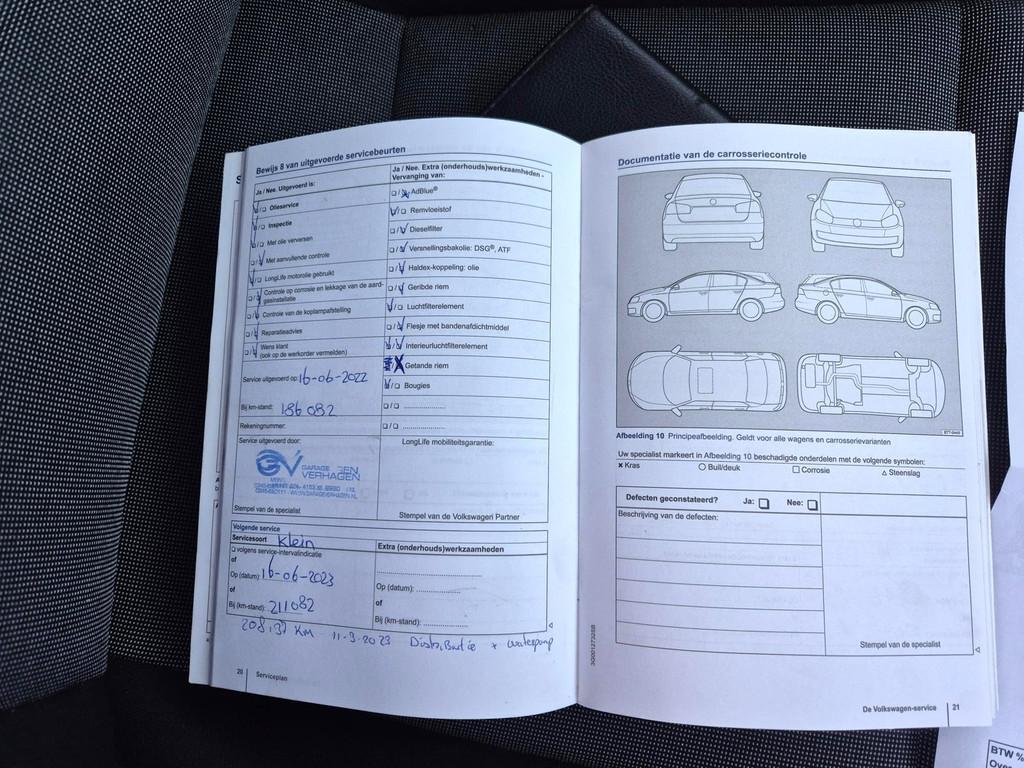 Bewijs 8 van uitgevoerde servicebeurten
Ja / Nee. Uitgevoerd is:
Olieservice
Inspectie
Met olie verversen
Met aanvullende controle
LongLife motorolie gebruikt
Controle op corrosie en lekkage van de aard-
gasinstallatie
Controle van de koplampafstelling
Reparatieadvies
Wens klant
(ook op de werkorder vermelden)
Service uitgevoerd op 16-06-2022
Bij km-stand: 186 082
Rekeningnummer:
Service uitgevoerd door:
GARAGE
VERHAGEN
Stempel van de specialist
Ja / Nee. Extra (onderhouds)werkzaamheden -
Vervanging van:
AdBlue®
Remvloeistof
Dieselfilter
Versnellingsbakolie: DSG®, ATF
Haldex-koppeling: olie
Geribde riem
Luchtfilterelement
Flesje met bandenafdichtmiddel
Interieurluchtfilterelement
Getande riem
Bougies
LongLife mobiliteitsgarantie:
Stempel van de Volkswagen Partner
Volgende service
Servicesoort Klein
volgens service-intervalindicatie
of
Op (datum): 16-06-2023
of
Bij (km-stand): 211082
Extra (onderhouds)werkzaamheden
Op (datum):
of
Bij (km-stand):
KM 11-9-2023 + waterpomp
20 Serviceplan
Documentatie van de carrosseriecontrole
Afbeelding 10 Principeafbeelding. Geldt voor alle wagens en carrosserievarianten
Uw specialist markeert in Afbeelding 10 beschadigde onderdelen met de volgende symbolen:
× Kras ○ Buil/deuk □ Corrosie △ Steenslag
Defecten geconstateerd? Ja: Nee:
Beschrijving van de defecten:
Stempel van de specialist
De Volkswagen-service 21
BTW %